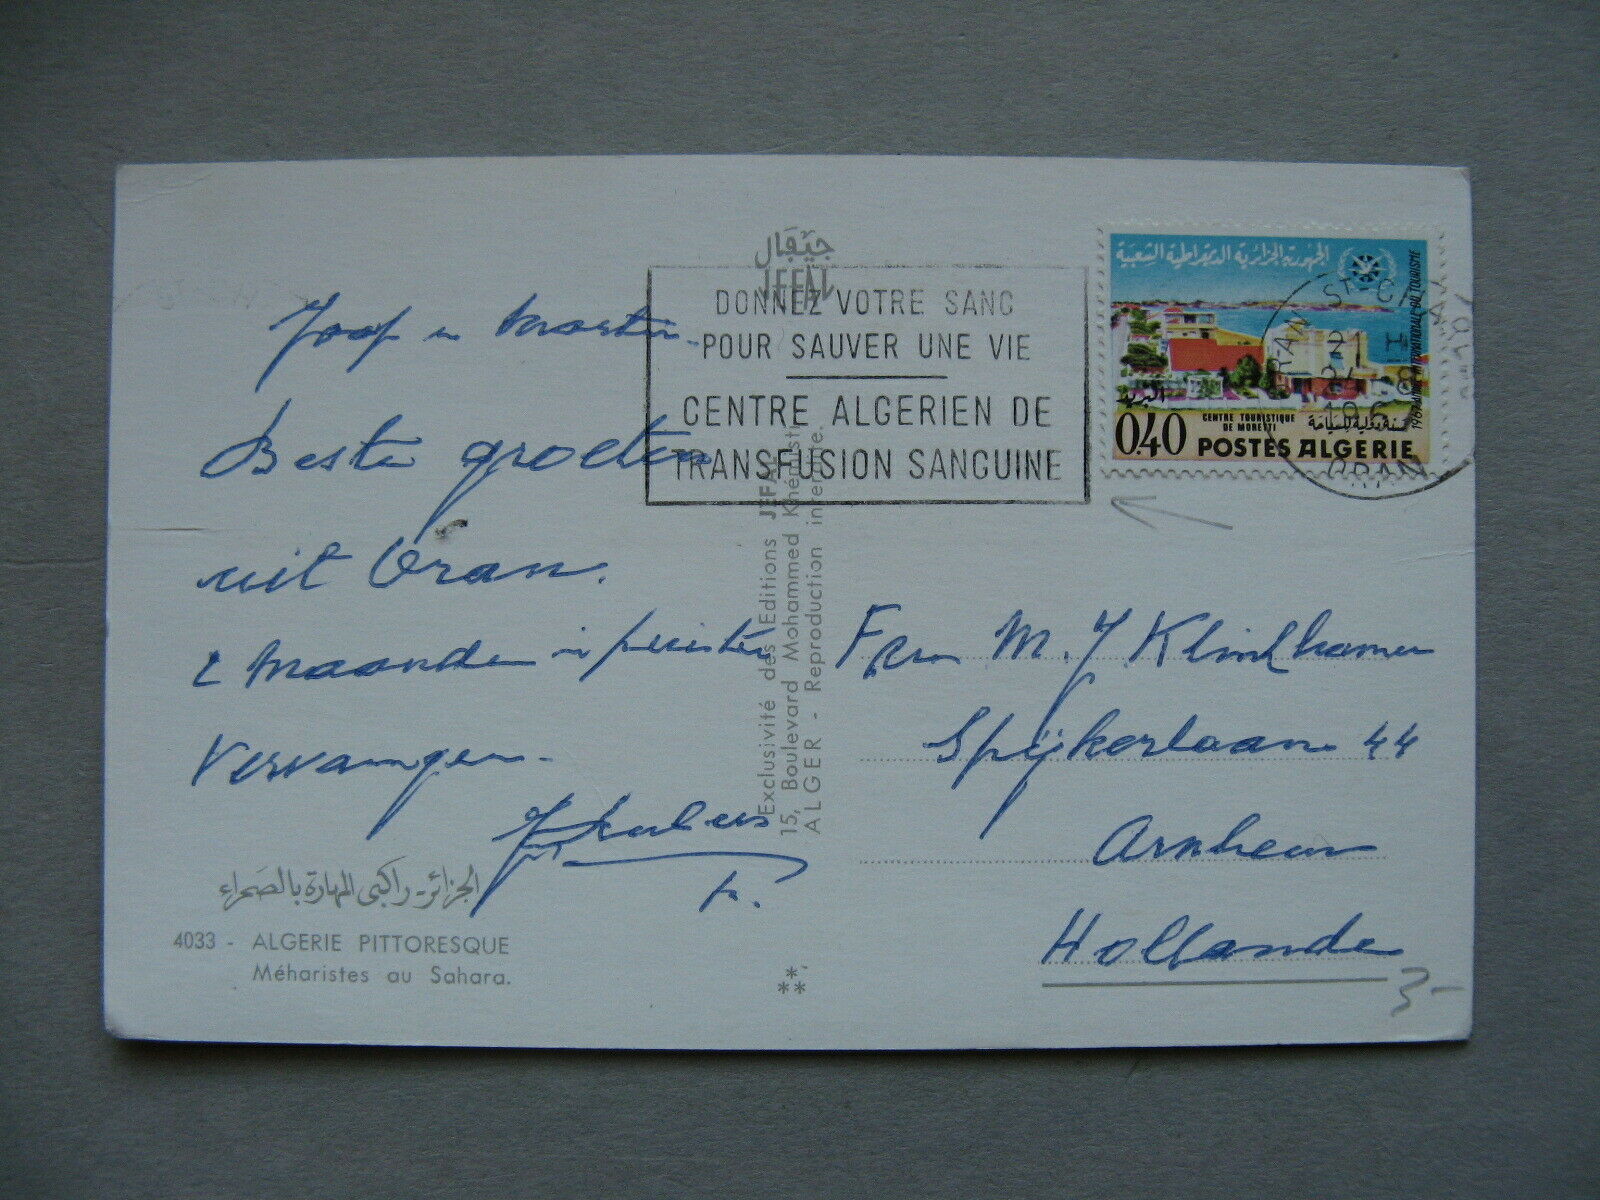 جيفال
JEFAL
DONNEZ VOTRE SANG
POUR SAUVER UNE VIE
CENTRE ALGERIEN DE
TRANSFUSION SANGUINE
الجمهورية الجزائرية الديمقراطية الشعبية
1967 ANNEE INTERNATIONALE DU TOURISME
البريد
CENTRE TOURISTIQUE
DE MORETTI
0.40 POSTES ALGERIE
ORAN
21 H
24
ORAN
Joop
Beste groeten
uit Oran.
2 maanden
vervangen.
Exclusivité des Editions JEFAL
15, Boulevard Mohammed Khémisti,
ALGER - Reproduction interdite.
M. J. Klinkhamer
Spijkerlaan 44
Arnhem
Hollande
الجزائر - راكبي المهارة بالصحراء
4033 - ALGERIE PITTORESQUE
Méharistes au Sahara.
3-